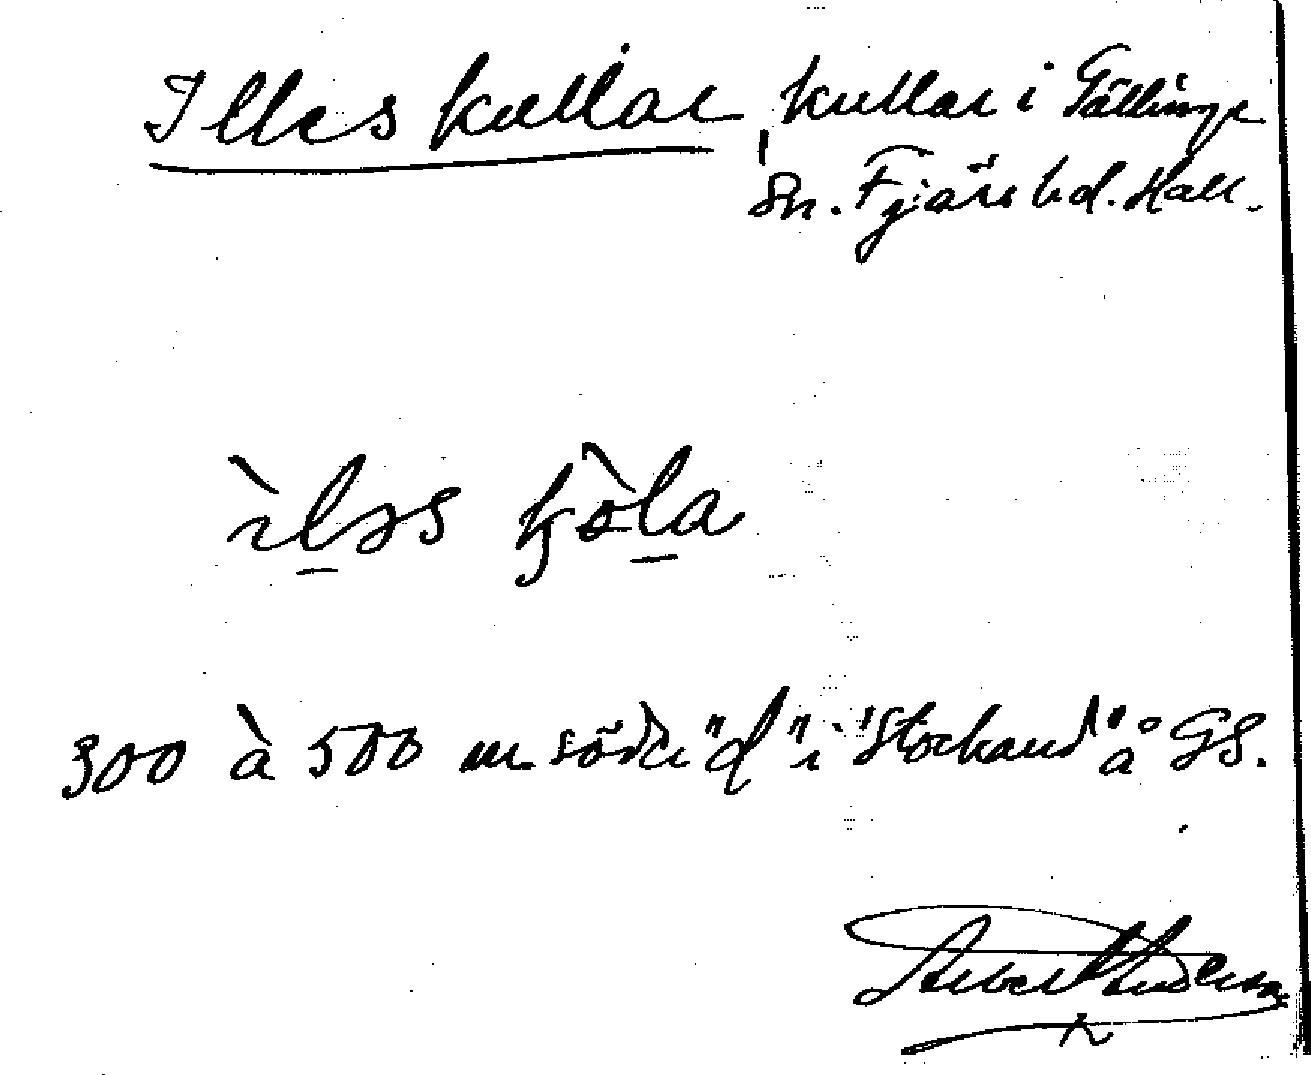 Illes kullar, kullar i Gällinge
Sn. Fjäre hd. Hall.
ìləs kjòla
300 à 500 m söder "d" i "Stockaud" å GS.